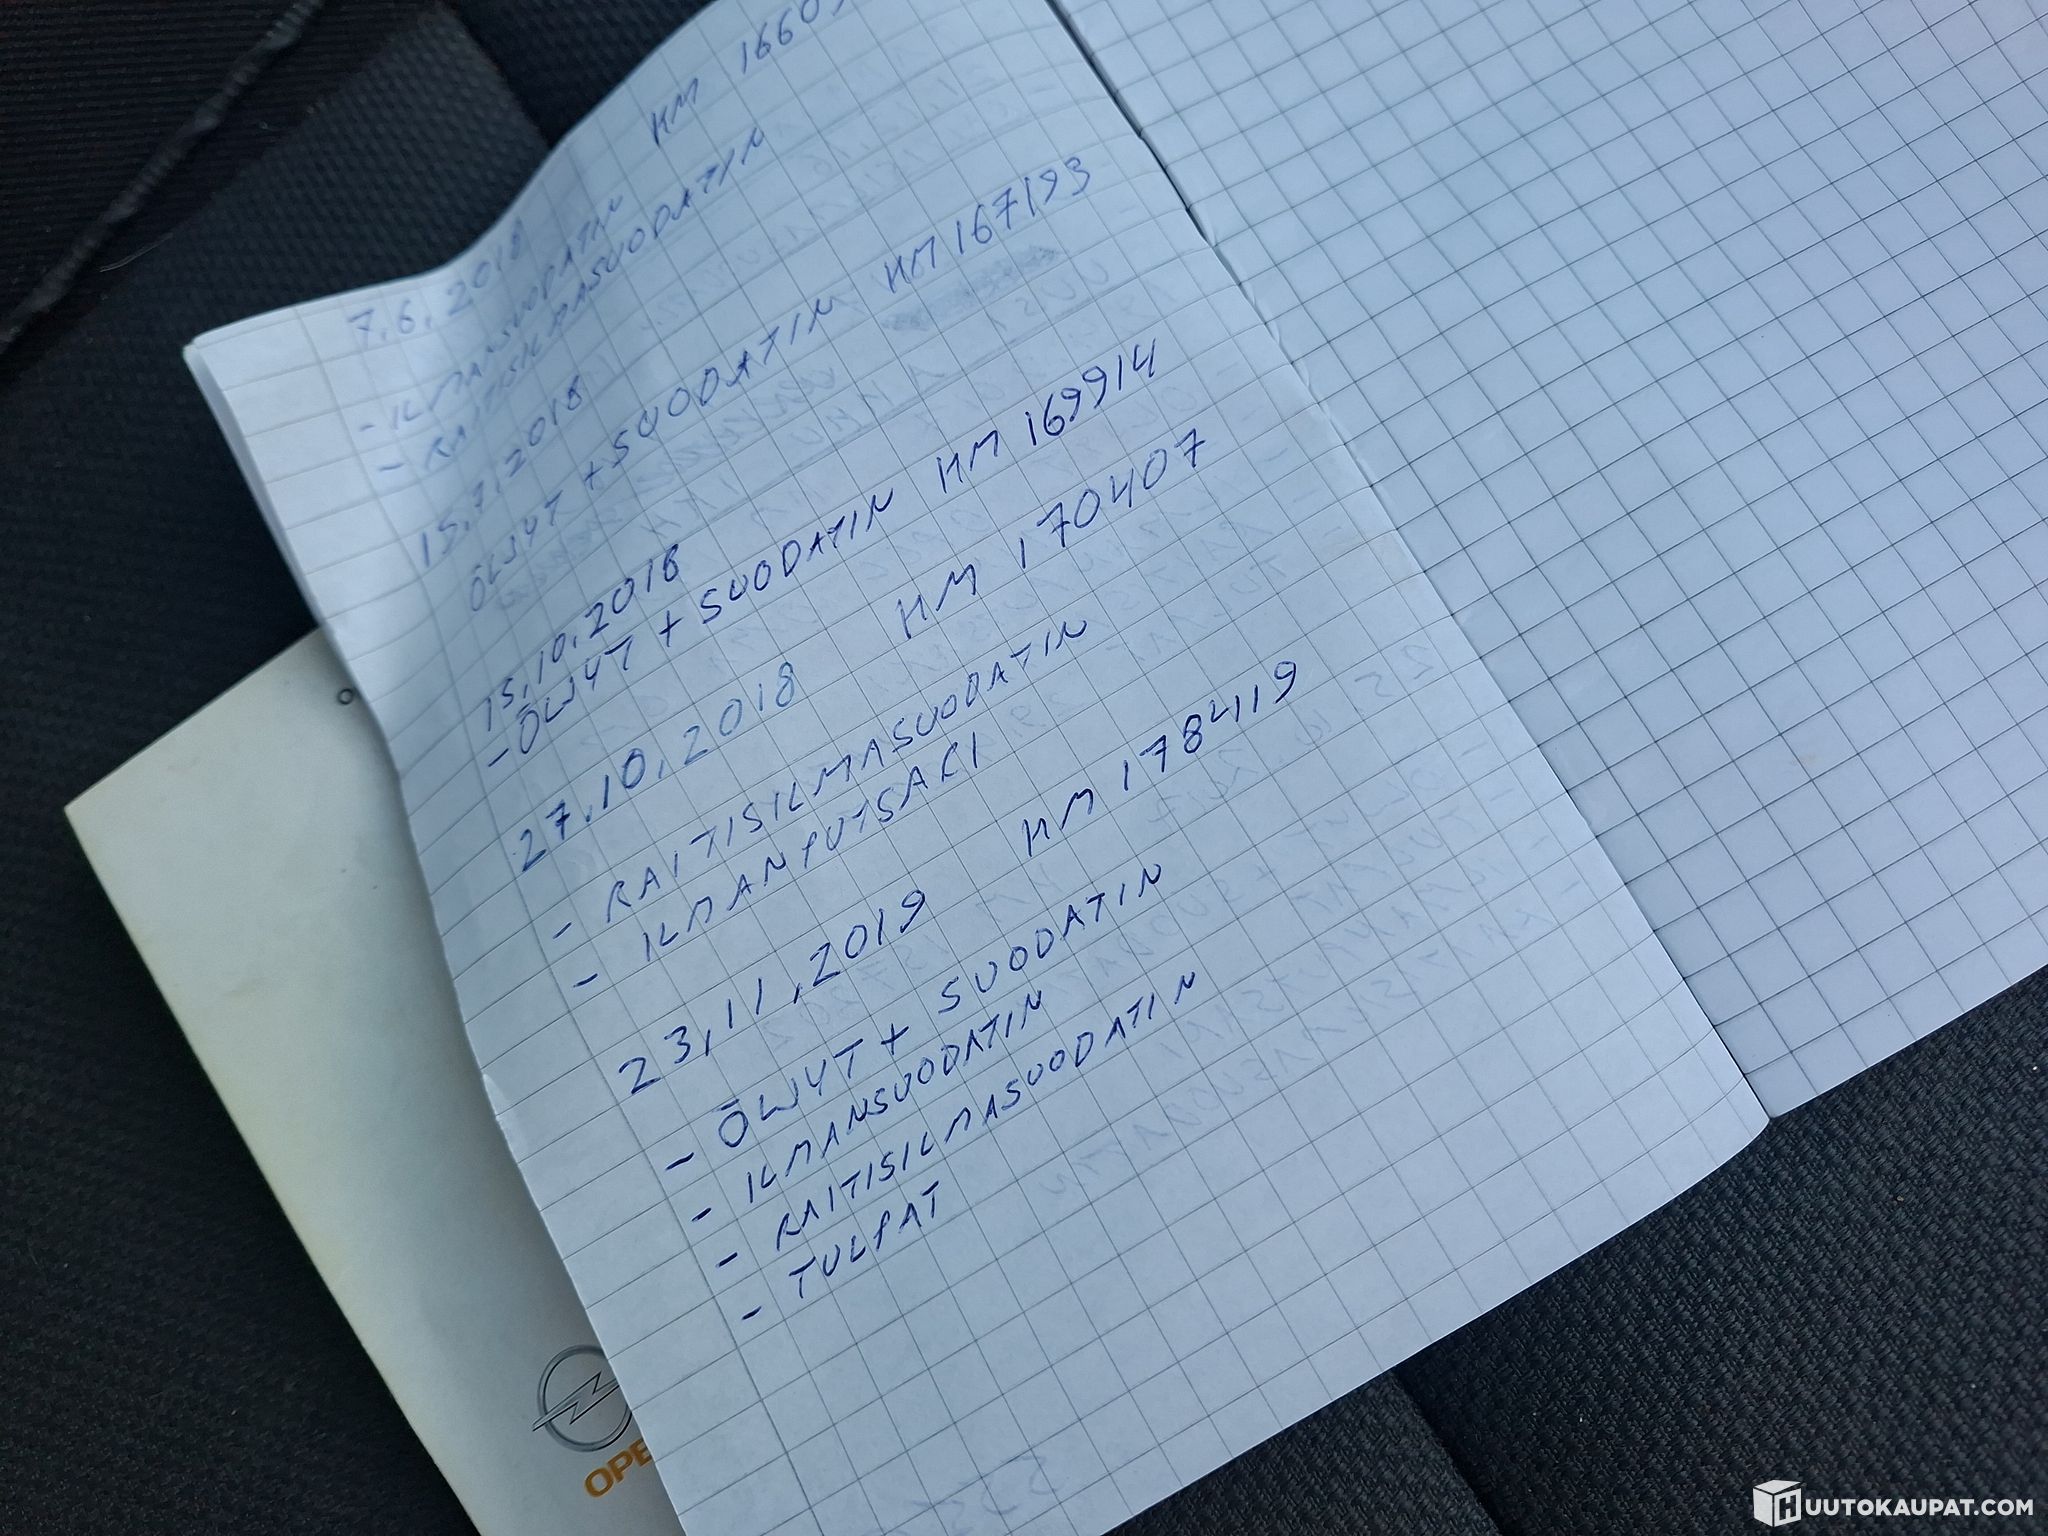 7.6.2018 KM 16609
- ILMANSUODATIN
- RAITISILMASUODATIN
15.7.2018
ÖLJYT + SUODATIN KM 167193
15.10.2018
- ÖLJYT + SUODATIN KM 169914
27.10.2018 KM 170407
- RAITISILMASUODATIN
- ILMANPUTSARI
23.11.2019 KM 178419
- ÖLJYT + SUODATIN
- ILMANSUODATIN
- RAITISILMASUODATIN
- TULPAT
OPE
HUUTOKAUPAT.COM